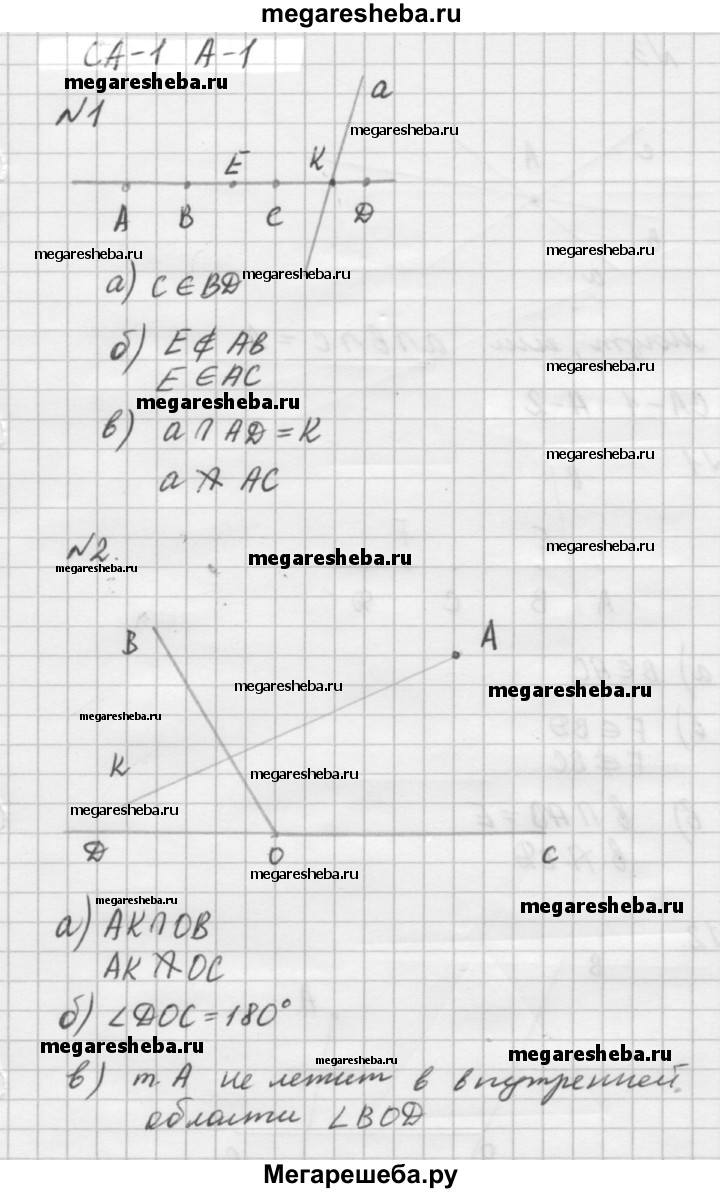 megaresheba.ru
СА-1 А-1
megaresheba.ru
№1
a
megaresheba.ru
E K
A B C D
megaresheba.ru
megaresheba.ru
megaresheba.ru
а) C ∈ BD
б) E ∉ AB
megaresheba.ru
E ∈ AC
megaresheba.ru
в) a ∩ AD = K
megaresheba.ru
a ∩̸ AC
megaresheba.ru
№2.
megaresheba.ru
megaresheba.ru
B
A
megaresheba.ru
megaresheba.ru
megaresheba.ru
K
megaresheba.ru
megaresheba.ru
D O C
megaresheba.ru
megaresheba.ru
megaresheba.ru
а) AK ∩ OB
AK ∩̸ OC
б) ∠DOC = 180°
megaresheba.ru
megaresheba.ru
megaresheba.ru
в) т. A не лежит в внутренней
области ∠BOD
Мегарешеба.ру